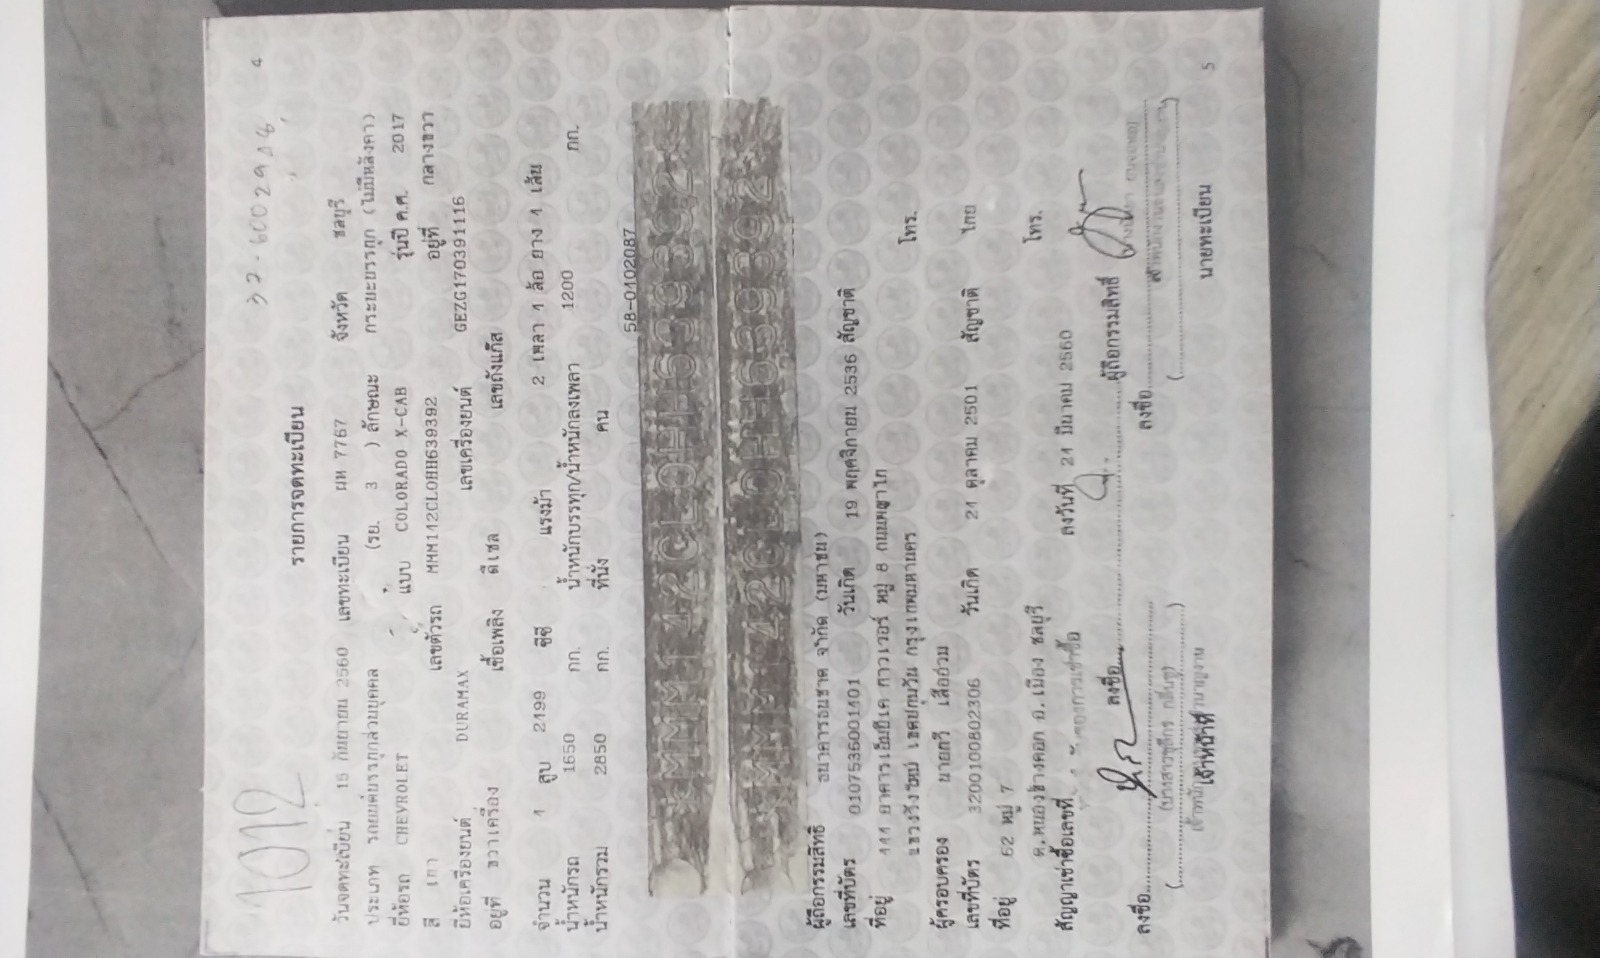 4
1012
รายการจดทะเบียน
วันจดทะเบียน 15 กันยายน 2560 เลขทะเบียน ผห 7767 จังหวัด ชลบุรี
ประเภท รถยนต์บรรทุกส่วนบุคคล (รย. 3 ) ลักษณะ กระบะบรรทุก (ไม่มีหลังคา)
ยี่ห้อรถ CHEVROLET แบบ COLORADO X-CAB รุ่นปี ค.ศ. 2017
สี เทา เลขตัวรถ MMM142CLOHH639392 อยู่ที่ กลางขวา
ยี่ห้อเครื่องยนต์ DURAMAX เลขเครื่องยนต์ GEZG170391116
อยู่ที่ ขวาเครื่อง เชื้อเพลิง ดีเซล เลขถังแก๊ส
จำนวน 4 สูบ 2499 ซีซี แรงม้า 2 เพลา 4 ล้อ ยาง 4 เส้น
น้ำหนักรถ 1650 กก. น้ำหนักบรรทุก/น้ำหนักลงเพลา 1200 กก.
น้ำหนักรวม 2850 กก. ที่นั่ง คน
58-0402087
*MMM142CLOHH639392*
*MMM142CLOHH639392*
ผู้ถือกรรมสิทธิ์ ธนาคารธนชาต จำกัด (มหาชน)
เลขที่บัตร 0107536001401 วันเกิด 19 พฤศจิกายน 2536 สัญชาติ
ที่อยู่ 444 อาคารเอ็มบีเค ทาวเวอร์ หมู่ 8 ถนนพญาไท โทร.
แขวงวังใหม่ เขตปทุมวัน กรุงเทพมหานคร
ผู้ครอบครอง นายทวี เสืออ่วม
เลขที่บัตร 3200100802306 วันเกิด 24 ตุลาคม 2501 สัญชาติ ไทย
ที่อยู่ 62 หมู่ 7 โทร.
ต.หนองข้างคอก อ.เมือง ชลบุรี
สัญญาเช่าซื้อเลขที่ ลงวันที่ 24 มีนาคม 2560
ลงชื่อ ผู้ถือกรรมสิทธิ์
ลงชื่อ ลงชื่อ
เจ้าหน้าที่ นายทะเบียน
5